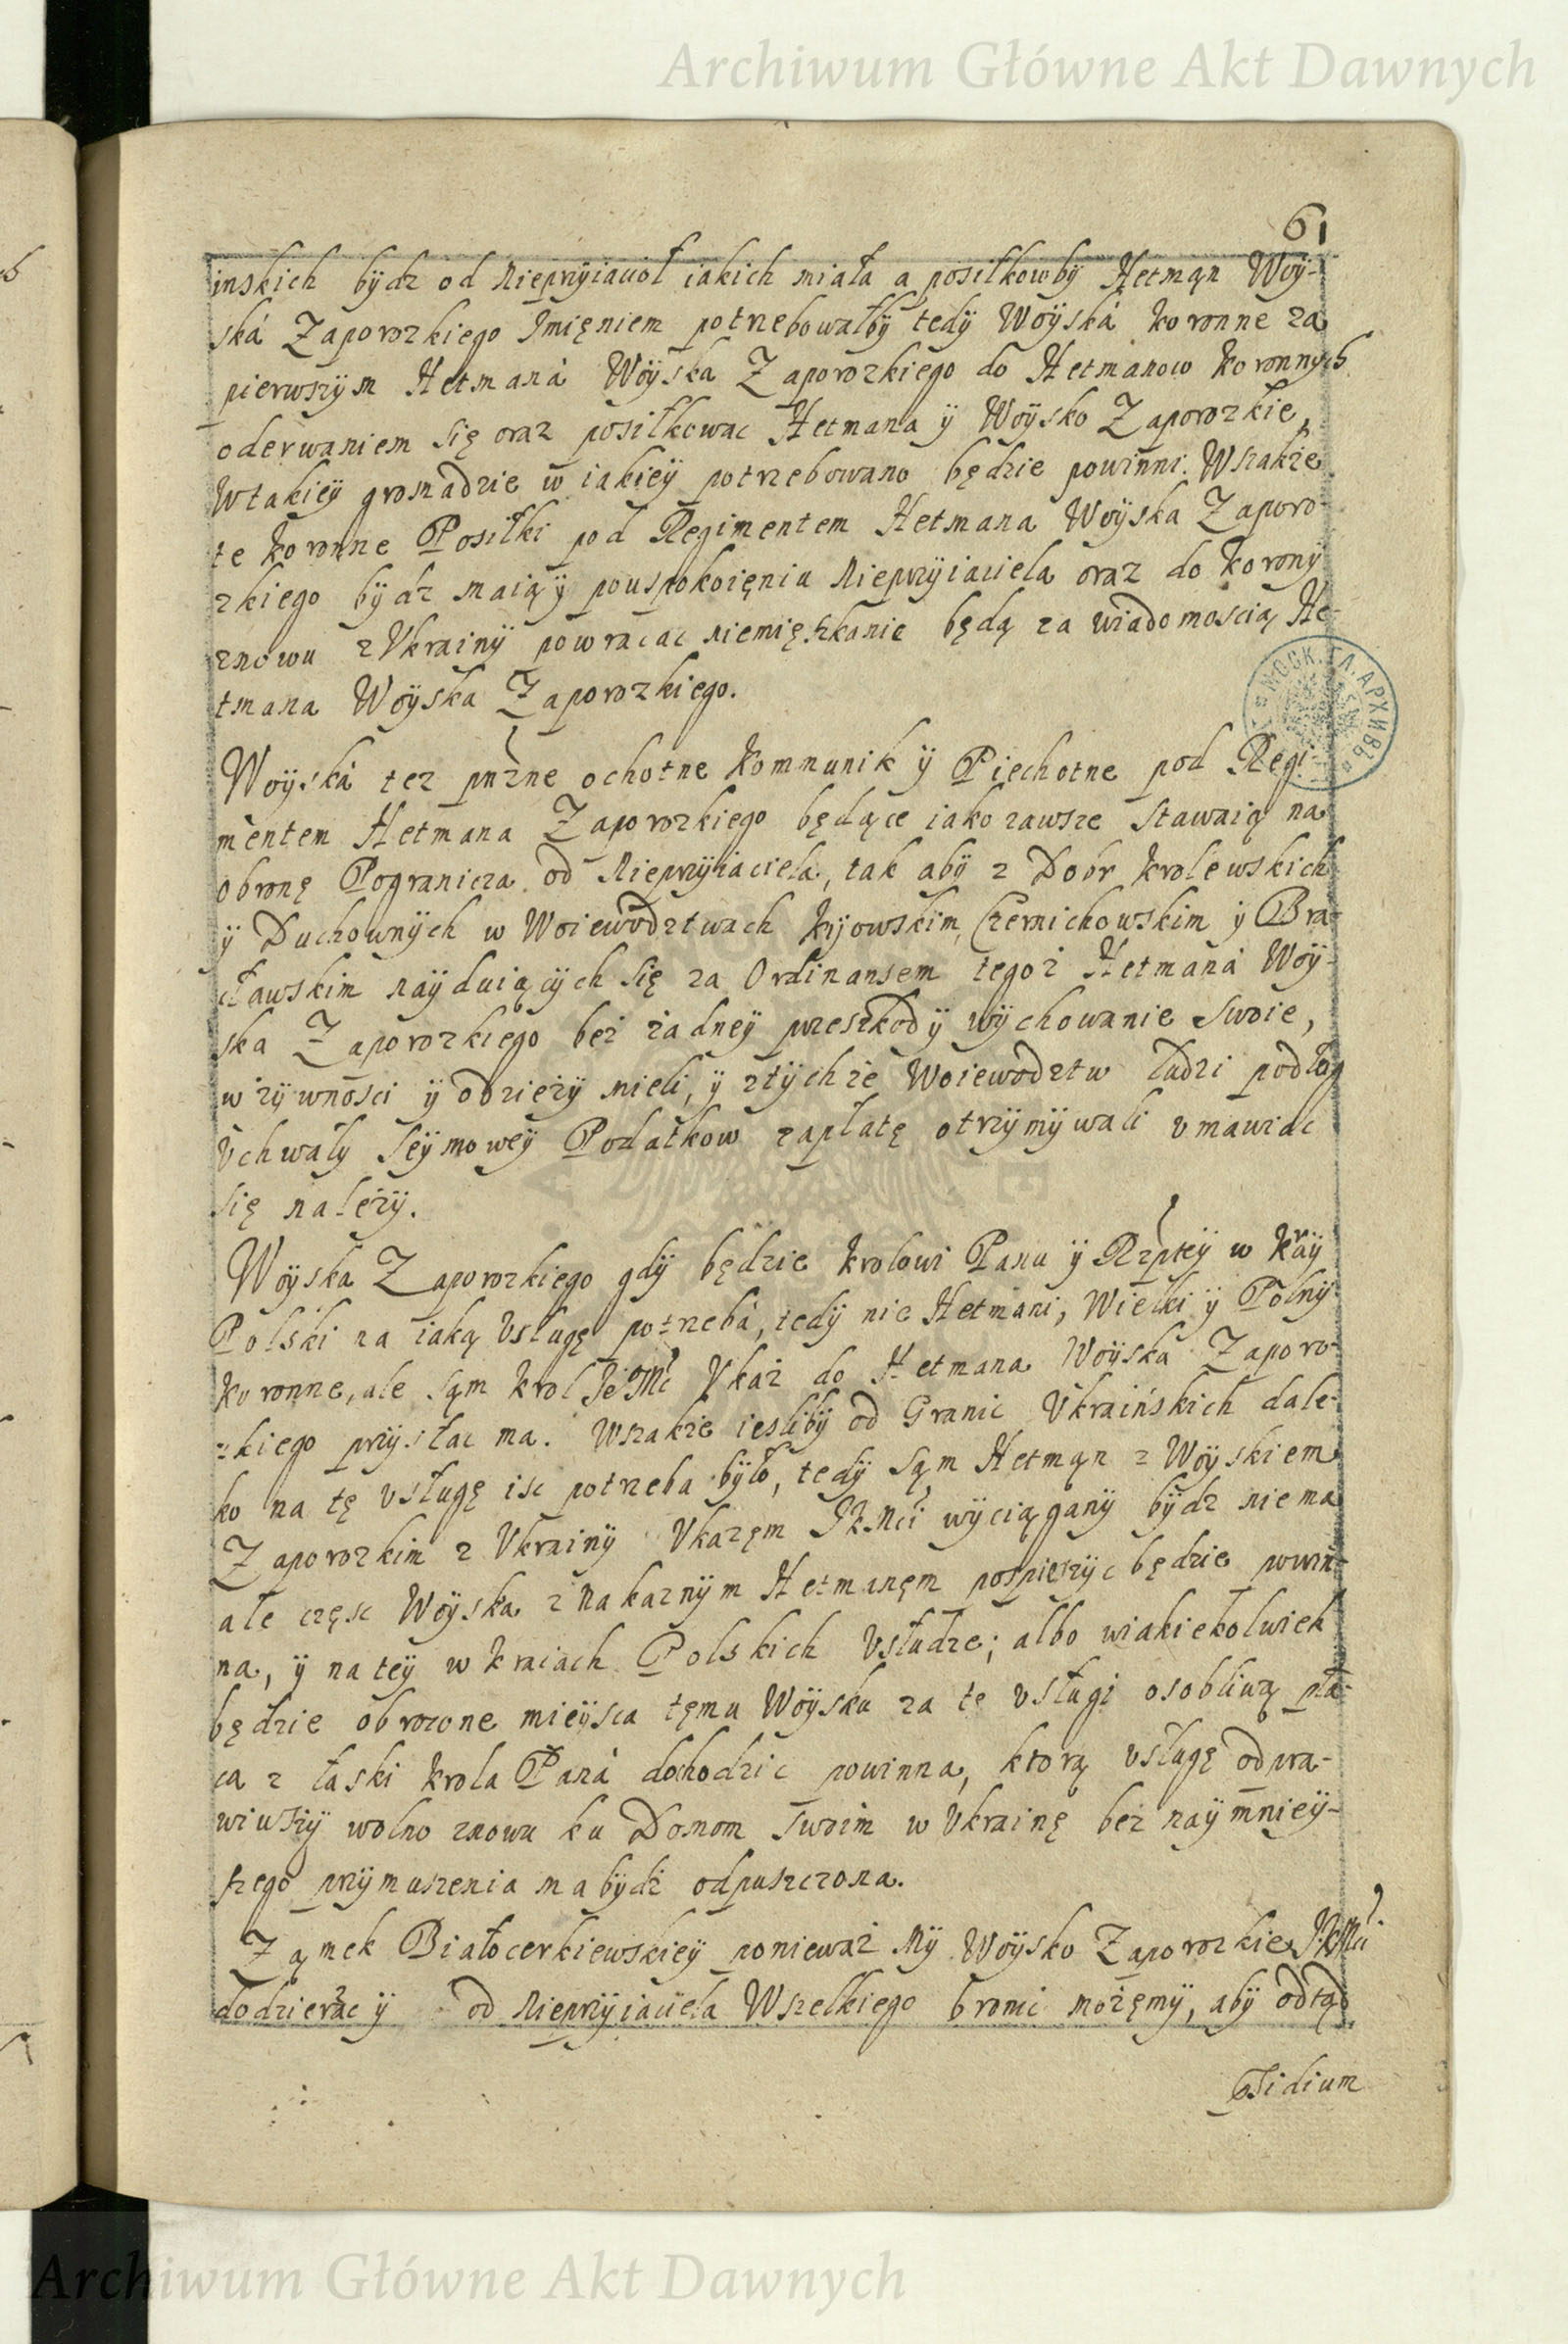 Archiwum Główne Akt Dawnych
61
inskich bydz od Nieprÿiaciół iakich miała a posiłkowbÿ Hetmąn Woÿ-
ská Zaporozkiego Imięniem potrzebowałbÿ tedÿ Woÿská koronne za
pierwszÿm Hetmaná Woÿska Zaporozkiego do Hetmanow koronnych
oderwaniem się oraz posiłkowac Hetmana ÿ Woÿsko Zaporozkie,
wtakieÿ gromadzie w iakieÿ potrzebowano będzie powinni. Wszakże
te koronne Posiłki pod Regimentem Hetmana Woÿska Zaporo-
zkiego bÿdz maią ÿ pouspokoięniu Nieprzÿiaciela oraz do koronÿ
znowu z Vkrainÿ powracac niemięszkanie będą za wiadomoscią He-
tmana Woÿska Zaporozkiego.
Woÿská tez pnzne ochotne kommunik ÿ Piechotne pod Regi
mentem Hetmana Zaporozkiego będące iako zawsze stawaią na
obronę Pogranicza od Nieprzÿiaciela, tak abÿ z Dobr krolewskich
ÿ Duchownÿch w Woiewodztwach kijowskim, Czernichowskim ÿ Bra-
cławskim naÿduiącÿch się za Ordinansem tegoż Hetmaná Woÿ-
ska Zaporozkiego beż żadneÿ przeszkodÿ wÿchowanie swoie,
w żÿwnosci ÿ odzieżÿ mieli, ÿ ztÿchże Woiewodztw ludzi podłog
Vchwałÿ Seÿmoweÿ Podatkow zapłatę otrzÿmÿwali vmawiac
się należÿ.
Woÿska Zaporozkiego gdÿ będzie krolowi Panu ÿ Rzpteÿ w kraÿ
Polski na iaką Vsługę potrzebá, tedÿ nie Hetmani, Wielki ÿ Polnÿ
koronne, ale sąm krol Je Mć Vkaż do Hetmana Woÿska Zaporo-
zkiego przÿsłac ma. Wszakże ieslibÿ od Granic Vkraińskich dale-
ko na tę vsługę isc potrzeba bÿło, tedÿ sąm Hetmąn z Woÿskiem
Zaporozkim z Vkrainÿ Vkazęm JKMci wÿciąganÿ bÿdz niema
ale częsc Woÿska z nakaznÿm Hetmanęm pospieszÿc będzie powin-
na, ÿ na teÿ w kraiach Polskich Vsłudze; albo wiakiekolwiek
będzie obrocone mieÿsca tęmu Woÿsku za te vsługi osobliwą pła-
ca z łaski krola Paná dochodzic powinna, ktorą vsługę odpra-
wiwszÿ wolno znowu ku Domom swoim w Vkrainę beż naÿmnieÿ-
szego przÿmuszenia ma bÿdź odpuszczona.
Ząmek Białocerkiewskieÿ ponieważ Mÿ Woÿsko Zaporozkie JKMci
dodzierzac ÿ od Nieprzÿiaciela Wszelkiego bronic możęmÿ, abÿ odtąd
psidium
МОСК. ГЛ. АРХИВЪ
Archiwum Główne Akt Dawnych